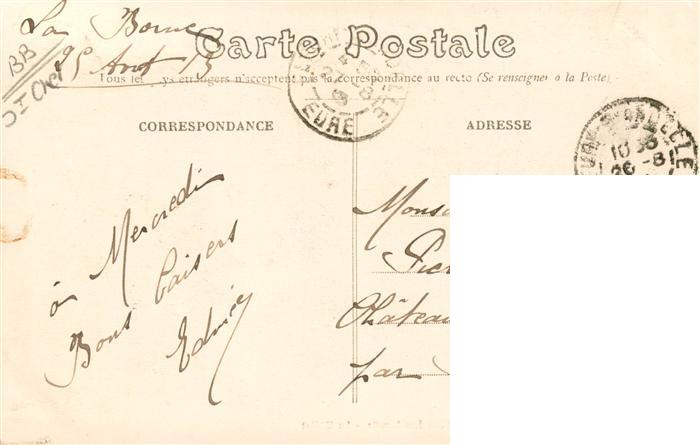 La Borne
25 Août 13
BB
Carte Postale
Tous les pays étrangers n'acceptent pas la correspondance au recto (Se renseigner à la Poste).
EURE
CORRESPONDANCE
ADRESSE
10 35
26 -8
à Mercredi
Bons baisers
Edmée
Mons
Pier
Château
par